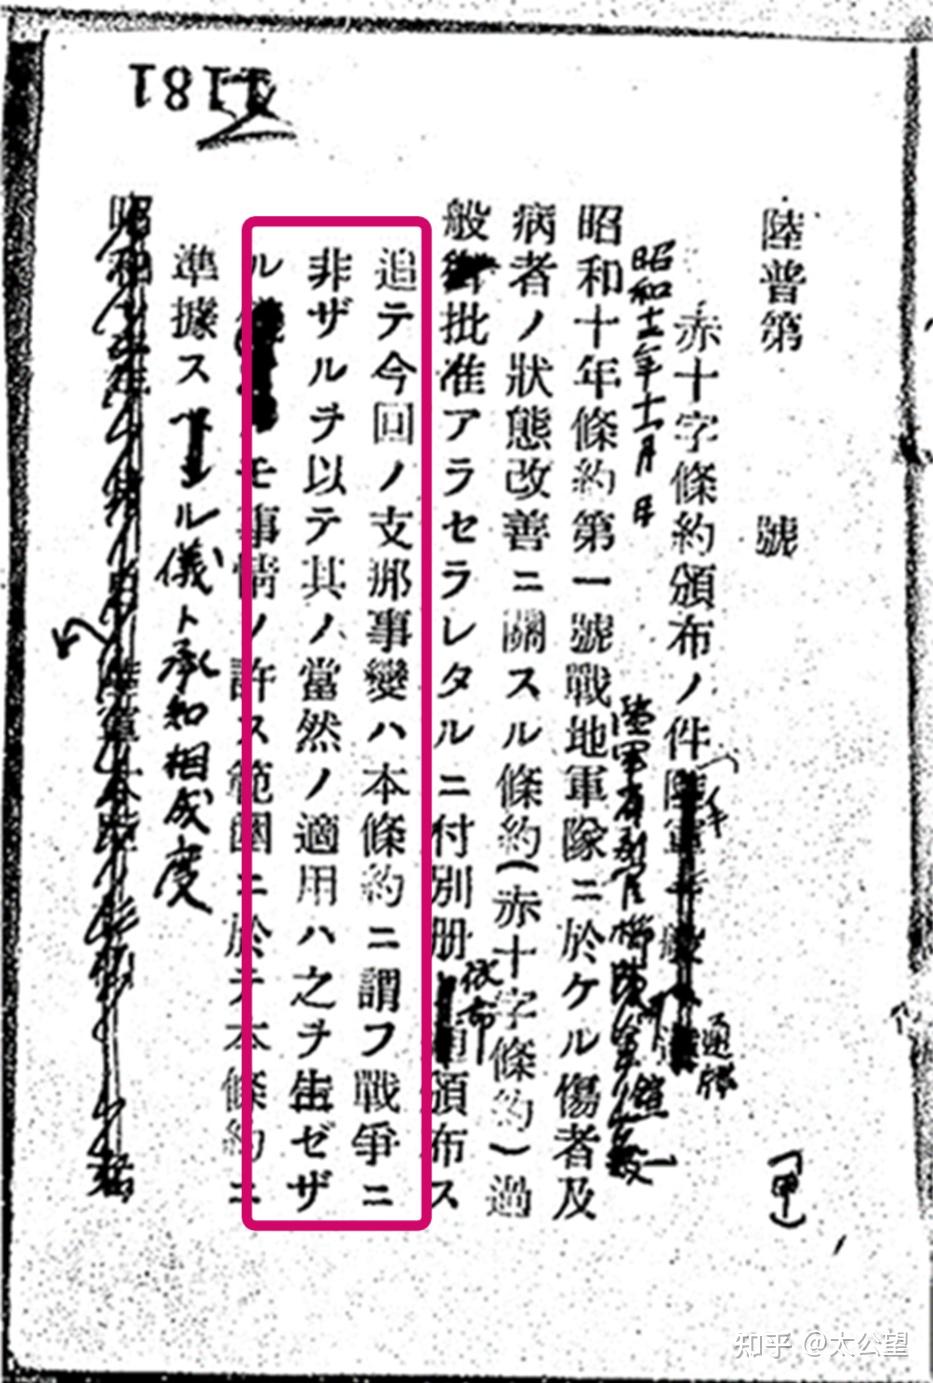 1181
陸普第　　號
（甲）
赤十字條約頒布ノ件
通牒
昭和十二年十一月 日
昭和十年條約第一號戰地軍隊ニ於ケル傷者及
病者ノ狀態改善ニ關スル條約(赤十字條約)過
般批准アラセラレタルニ付別册
依而
頒布ス
追テ今回ノ支那事變ハ本條約ニ謂フ戰爭ニ
非ザルヲ以テ其ノ當然ノ適用ハ之ヲ生ゼザ
ルモ事情ノ許ス範圍ニ於テ本條約ニ
準據スル儀ト承知相成度
知乎 @太公望